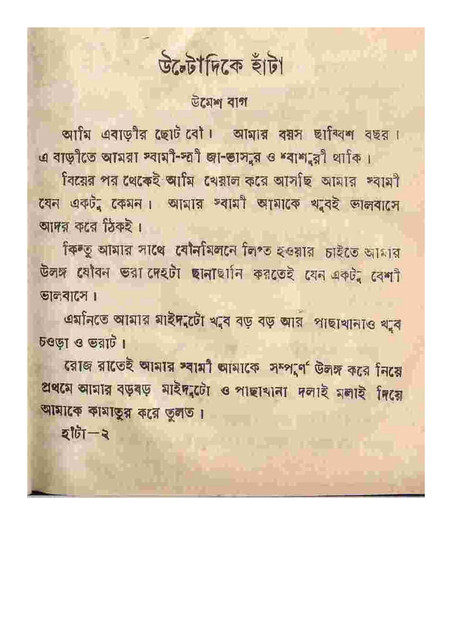 উল্টোদিকে হাঁটা
উমেশ বাগ
আমি এবাড়ীর ছোট বৌ। আমার বয়স ছাব্বিশ বছর।
এ বাড়ীতে আমরা স্বামী-স্ত্রী জা-ভাসুর ও শ্বাশুরী থাকি।
বিয়ের পর থেকেই আমি খেয়াল করে আসছি আমার স্বামী
যেন একটু কেমন। আমার স্বামী আমাকে খুবই ভালবাসে
আদর করে ঠিকই।
কিন্তু আমার সাথে যৌনমিলনে লিপ্ত হওয়ার চাইতে আমার
উলঙ্গ যৌবন ভরা দেহটা ছানাছানি করতেই যেন একটু বেশী
ভালবাসে।
এমনিতে আমার মাইদুটো খুব বড় বড় আর পাছাখানাও খুব
চওড়া ও ভরাট।
রোজ রাতেই আমার স্বামী আমাকে সম্পূর্ণ উলঙ্গ করে নিয়ে
প্রথমে আমার বড়বড় মাইদুটো ও পাছাখানা দলাই মলাই দিয়ে
আমাকে কামাতুর করে তুলত।
হাঁটা—২